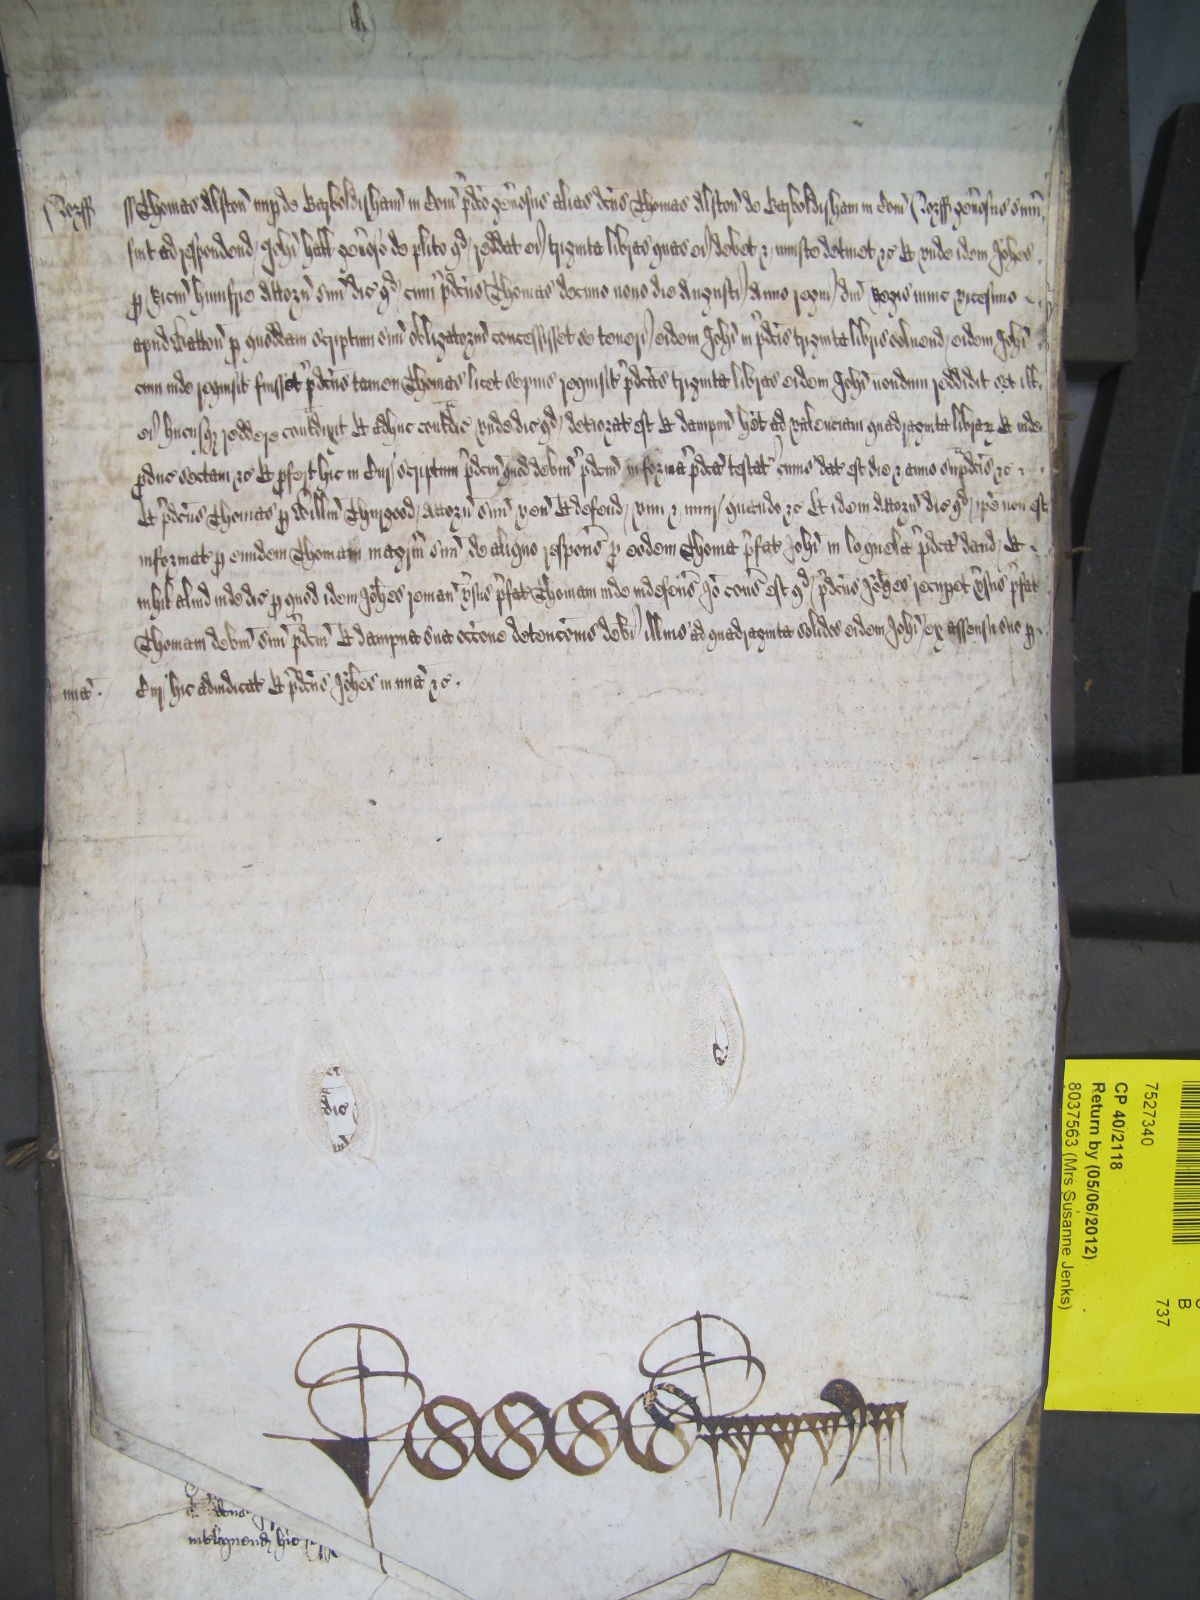 Norff ss Thomas Alston nup de Garboldisham in Com p̃dco gen̄osus alias dc̄us Thomas Alston de Garboldisham in Com Norff gen̄osus sum̄
fuit ad respondend Joh̄i Hall gen̄oso de plito qd reddat ei triginta libras quas ei debet & iniuste detinet &c Et unde idem Joh̄es
p Ric̄m Humfrie Attorn̄ suū dic qd cum p̃dc̄us Thomas decimo nono die Augusti Anno regni dn̄i Regis nunc vicesimo
apud p quoddam scriptum suū obligatoriū concessisset se teneri eidem Joh̄i in p̃dc̄is triginta libris solvend eidem Joh̄i
cum inde requisit fuisset p̃dc̄us tamen Thomas licet sepius requisit p̃dc̄as triginta libras eidem Joh̄i nondum reddidit set ill
ei hucusq reddere contradixit Et adhuc contradic unde dic qd deteriorat est Et dampnū h̄et ad valenciam quadraginta librar̄ Et inde
produc sectam &c Et profert hic in Cur scriptum p̃dc̄m quod debitū p̃dc̄m in forma p̃dc̄a testat̄ cuius dat est die & anno sup̃dc̄is &c
Et p̃dc̄us Thomas p Will̄m Thurgood Attorn̄ suū ven̄ Et defend vim & iniur̄ quando &c Et idem Attorn̄ dic qd ip̄e non est
informat p eundem Thomam magr̄m suū de aliquo respons̄ p eodem Thoma p̃fat Joh̄i in loquela p̃dc̄a dand Et
nihil aliud inde dic p quod idem Joh̄es reman̄ v̄sus p̃fat Thomam inde indefens̄ Io cons̄ est qd p̃dc̄us Joh̄es recupet v̄sus p̃fat
Thomam debitū suū p̃dc̄m Et dampna sua occ̄one detenc̄onis debi illius ad quadraginta solidos eidem Joh̄i ex assensu suo p
mīa Cur hic adiudicat Et p̃dc̄us Joh̄es in mīa &c
dic
hic
7527340
CP 40/2118
Return by (05/06/2012)
8037563 (Mrs Susanne Jenks)
B
737